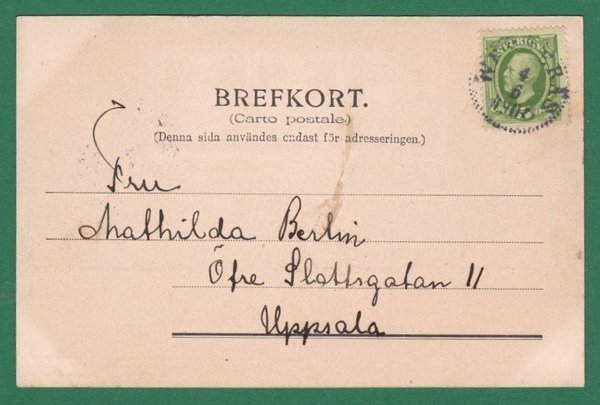 BREFKORT.
(Carto postale.)
(Denna sida användes endast för adresseringen.)
Fru
Mathilda Berlin
Öfre Slottsgatan 11
Uppsala